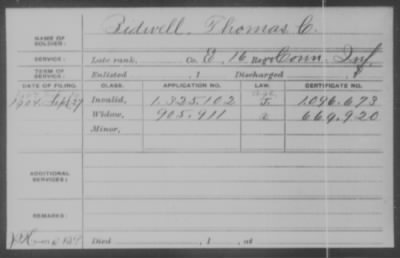 NAME OF SOLDIER: Bidwell, Thomas C.
SERVICE: Late rank, Co. E, 16 Reg't Conn. Inf.
TERM OF SERVICE: Enlisted , 1 Discharged , 1
DATE OF FILING. CLASS. APPLICATION NO. LAW. CERTIFICATE NO.
1904 Sept 27 Invalid, 1.325.102 1.096.673
Widow, 905.911 669.920
Minor,
ADDITIONAL SERVICES:
REMARKS:
Died , 1 , at